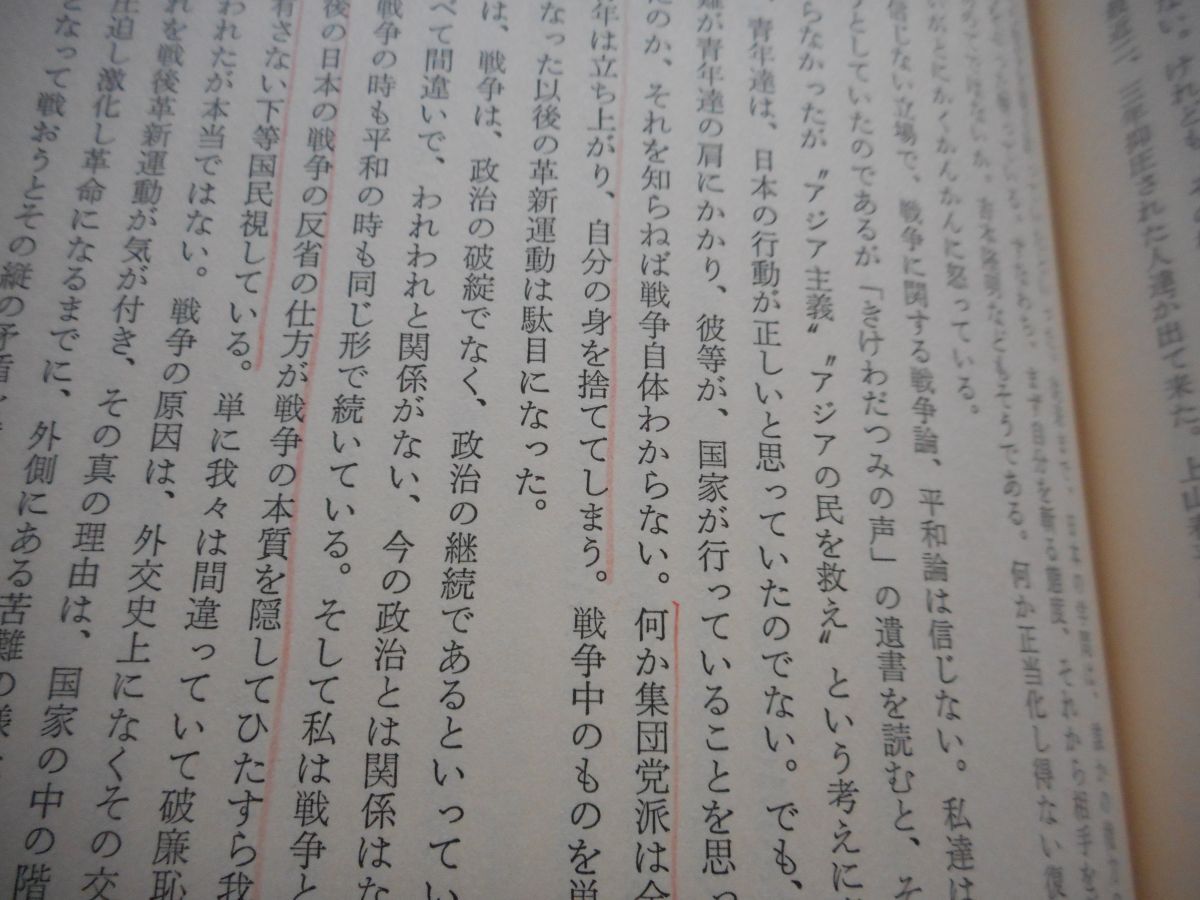 ない。けれども
最近二、三年抑圧された人達が出て来た。上山
まず自分を斬る態度、それから相手を
がとにかくかんかんに怒っている。
信じない立場で、戦争に関する戦争論、平和論は信じない。私達は
うとしていたのであるが「きけわだつみの声」の遺書を読むと、そ
らなかったが〝アジア主義〟〝アジアの民を救え〟という考えに
青年達は、日本の行動が正しいと思っていたのでない。でも、
難が青年達の肩にかかり、彼等が、国家が行っていることを思っ
たのか、それを知らねば戦争自体わからない。何か集団党派は全
年は立ち上がり、自分の身を捨ててしまう。戦争中のものを単
なった以後の革新運動は駄目になった。
は、戦争は、政治の破綻でなく、政治の継続であるといってい
べて間違いで、われわれと関係がない、今の政治とは関係はな
戦争の時も平和の時も同じ形で続いている。そして私は戦争と
後の日本の戦争の反省の仕方が戦争の本質を隠してひたすら我
有さない下等国民視している。単に我々は間違っていて破廉恥
われたが本当ではない。戦争の原因は、外交史上になくその交
れを戦後革新運動が気が付き、その真の理由は、国家の中の階
圧迫し激化し革命になるまでに、外側にある苦難の
となって戦おうとその縦の矛盾